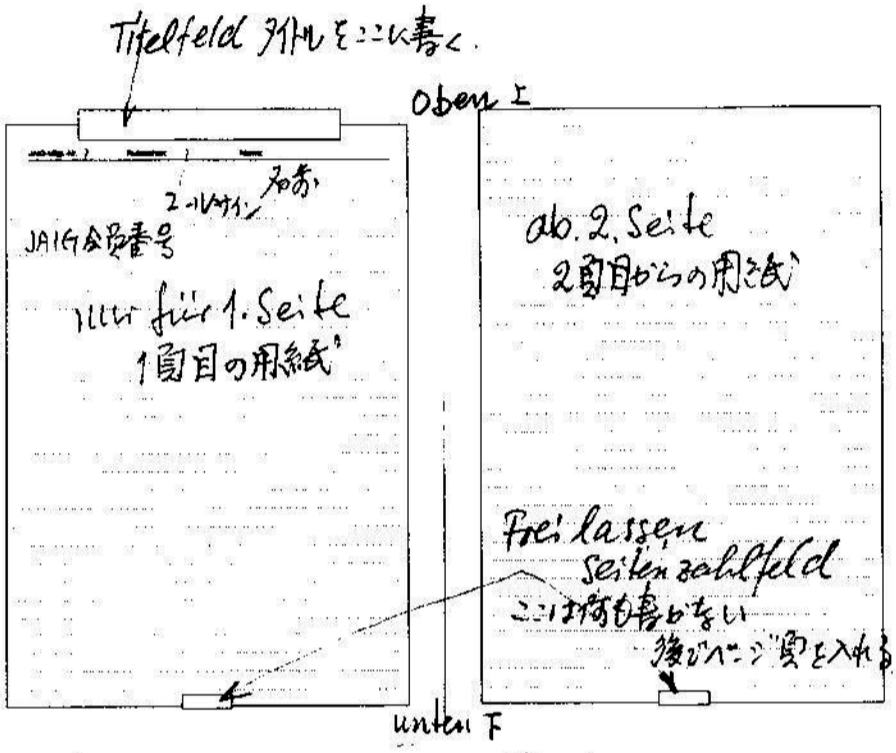 Titelfeld タイトルをここに書く.
Oben 上
名前
コールサイン
JAIG会員番号
nur für 1. Seite
1頁目の用紙
ab. 2. Seite
2頁目からの用紙
Frei lassen
Seitenzahlfeld
ここは何も書かない
後でページ頁を入れる
unten 下